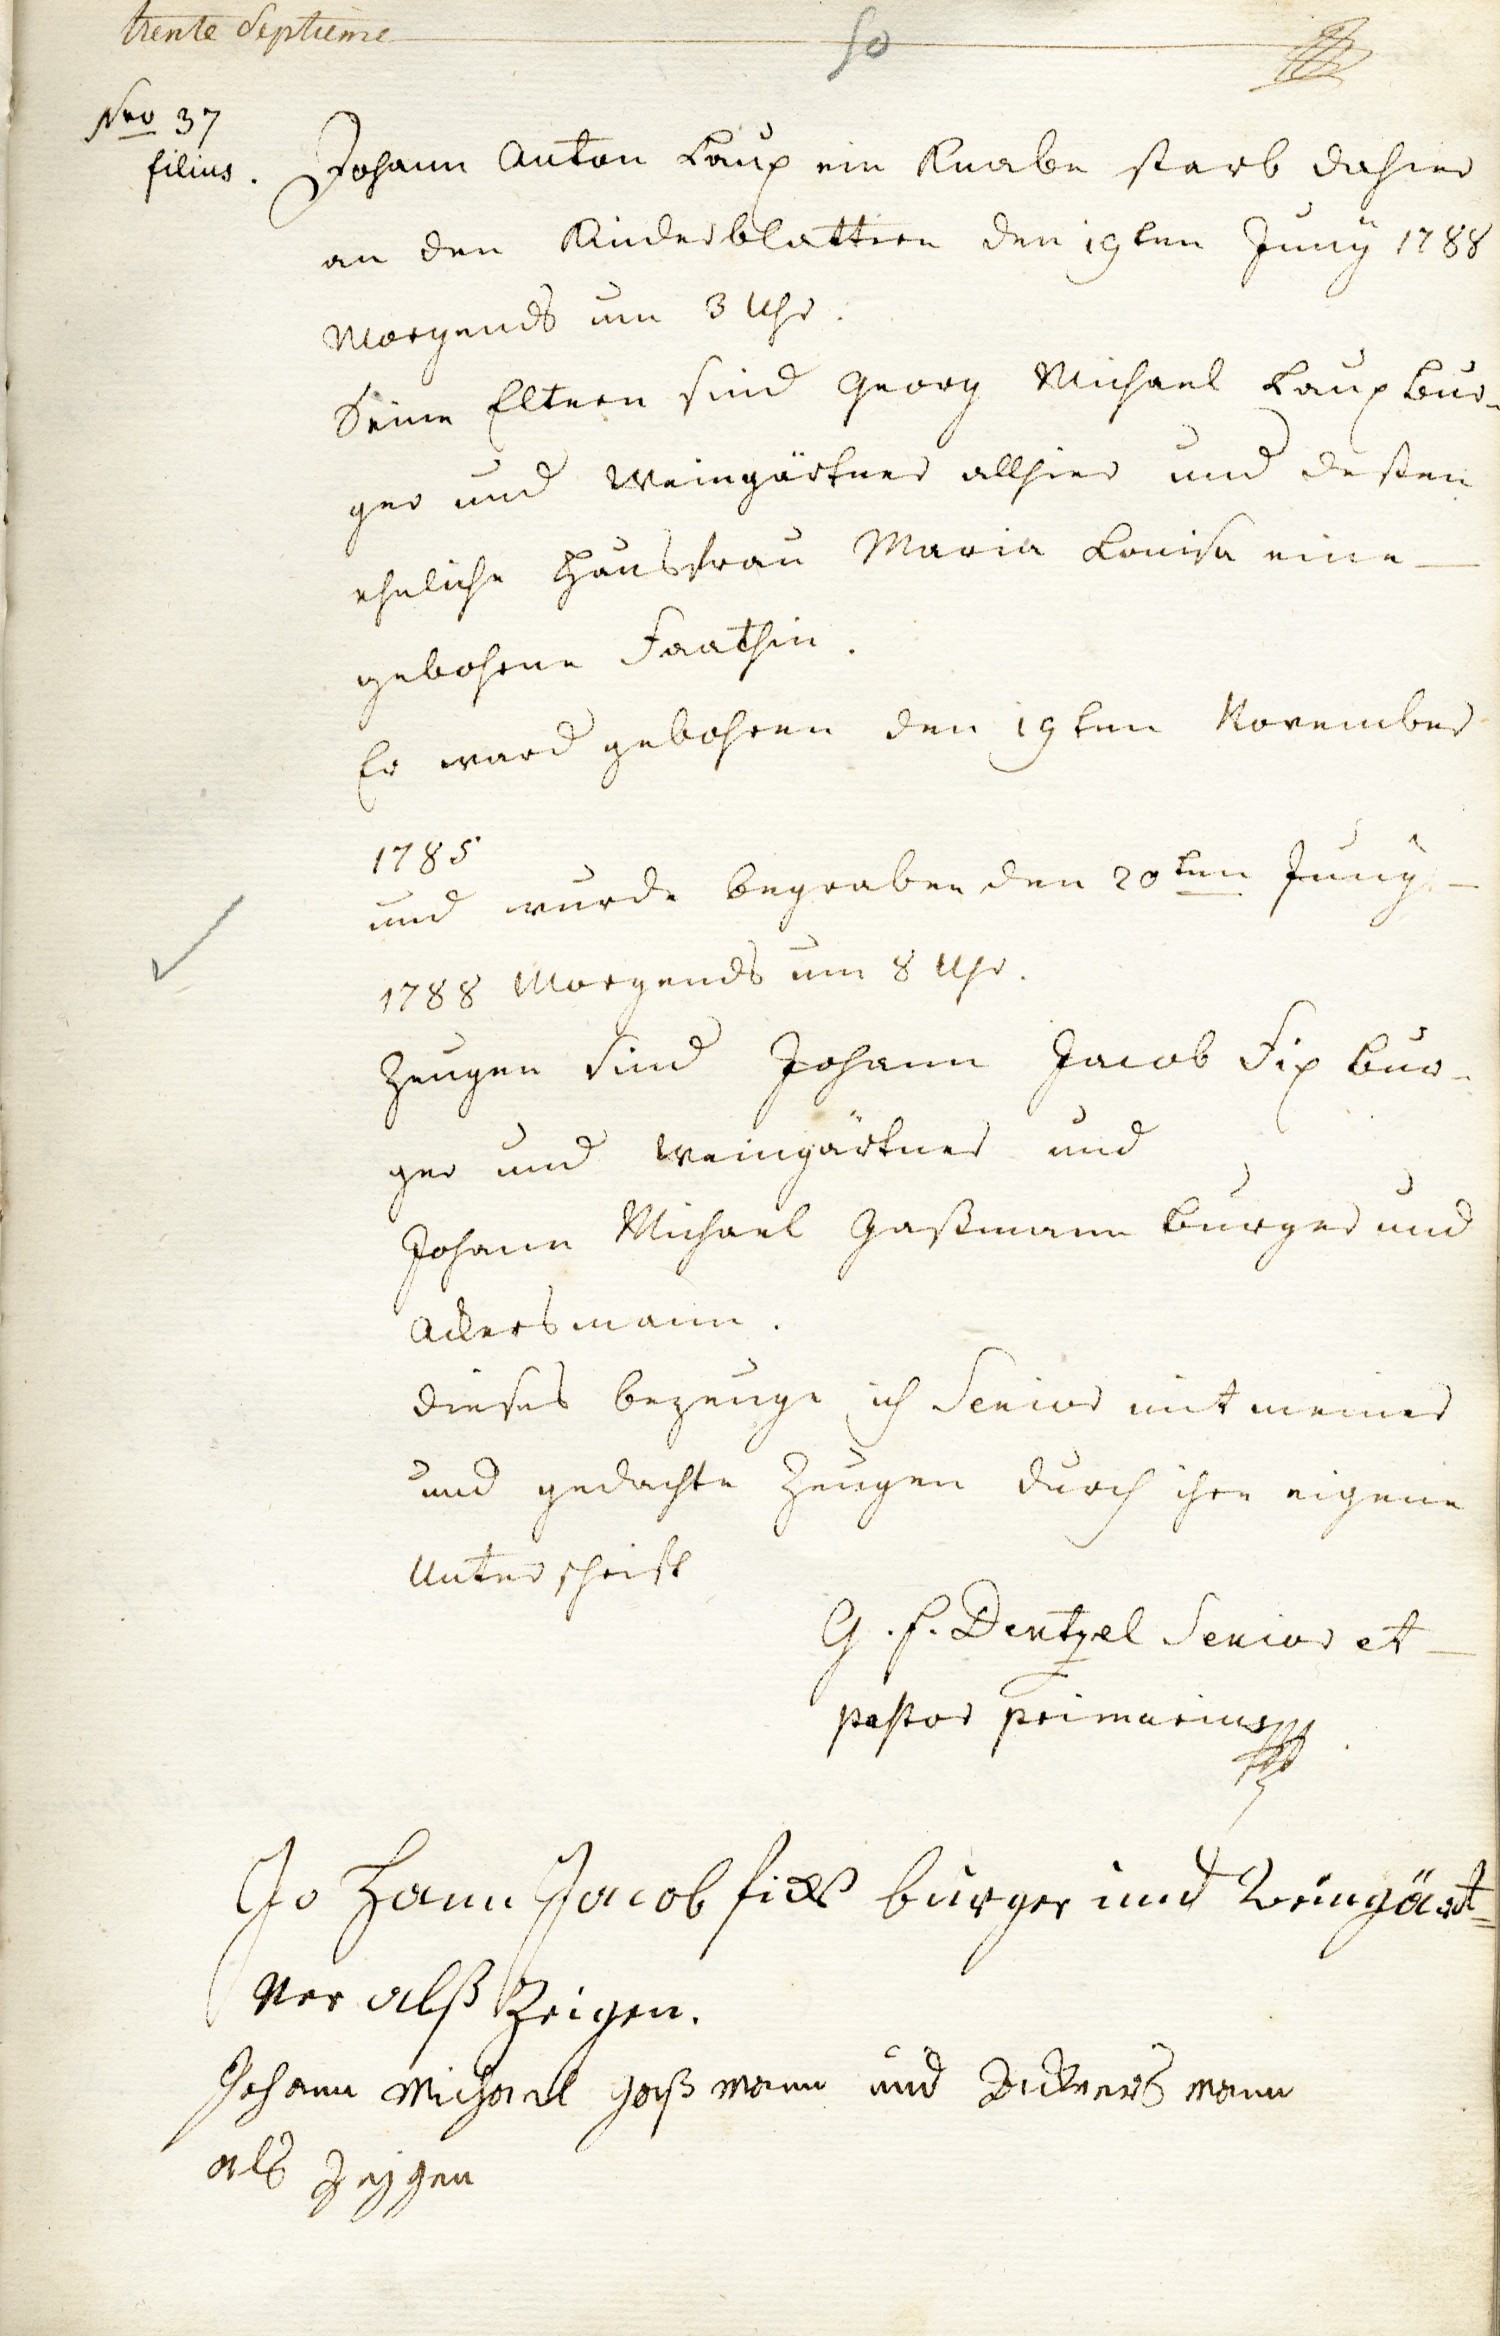 trente Septieme
50
Nro 37
filius.
Johann Anton Laux ein Knabe starb dahier
an den Kinderblattern den 19ten Juny 1788
Morgends um 3 Uhr.
Seine Eltern sind Georg Michael Laux Bur-
ger und Weingärtner allhier und dessen
eheliche Hausfrau Maria Louisa eine
gebohrne Faathin.
Er ward gebohren den 19ten November
1785
und wurde begraben den 20ten Juny
1788 Morgends um 8 Uhr.
Zeugen sind Johann Jacob Fix Bur-
ger und Weingärtner und
Johann Michael Gaßmann Burger und
Ackersmann.
Dieses bezeuge ich Senior mit meiner
und gedachte Zeugen durch ihre eigene
Unterschrift
G. F. Dentzel Senior et
pastor primarius
Johann Jacob fix burger und Weingärt=
ner alß Zeigen.
Johann Michael Gaß mann und Ackers mann
als Zeygen